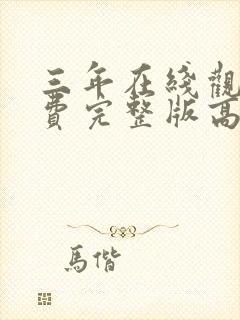 三年在綫觀
費完整版高
馬偕